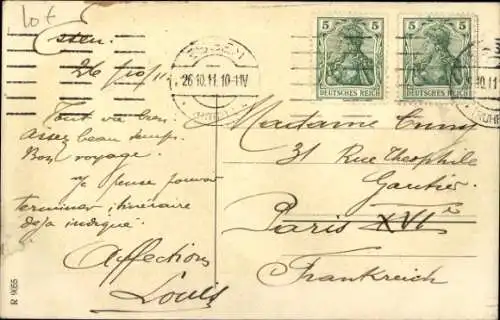 10 €
Essen
26/10/11
Tout va bien
Assez beau temps.
Bon voyage.
Je pense pouvoir
terminer itinéraire
déjà indiqué.
Affections
Louis
R 9055
ESSEN
26.10.11.10-11V
(RUHR)
5 5
DEUTSCHES REICH
5 5
DEUTSCHES REICH
.10.11
(RUHR
Madame
31 Rue Théophile
Gautier
Paris XVIe
Frankreich